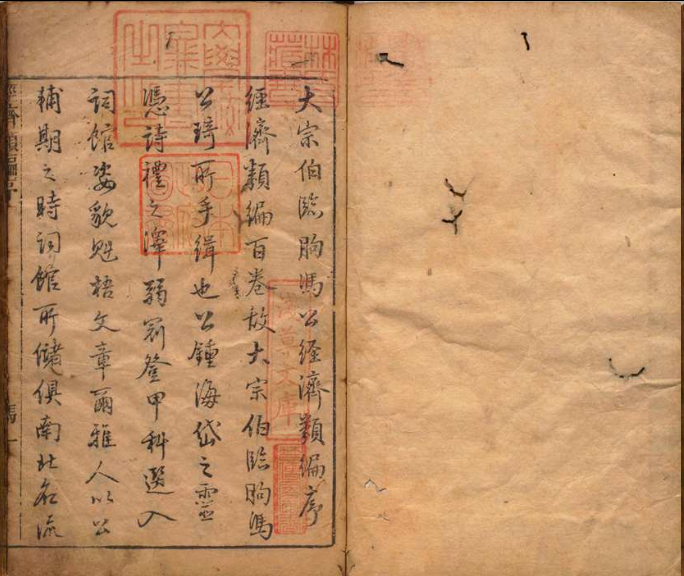 大宗伯臨朐馮公經濟類編序
經濟類編百卷故大宗伯臨朐馮
公琦所手緝也公鍾海岱之靈
憑詩禮之澤弱冠登甲科選入
詞館姿貌魁梧文章爾雅人以公
輔期之時詞館所儲俱南北名流
經濟類編序
馮一
林氏藏書
淺草文庫